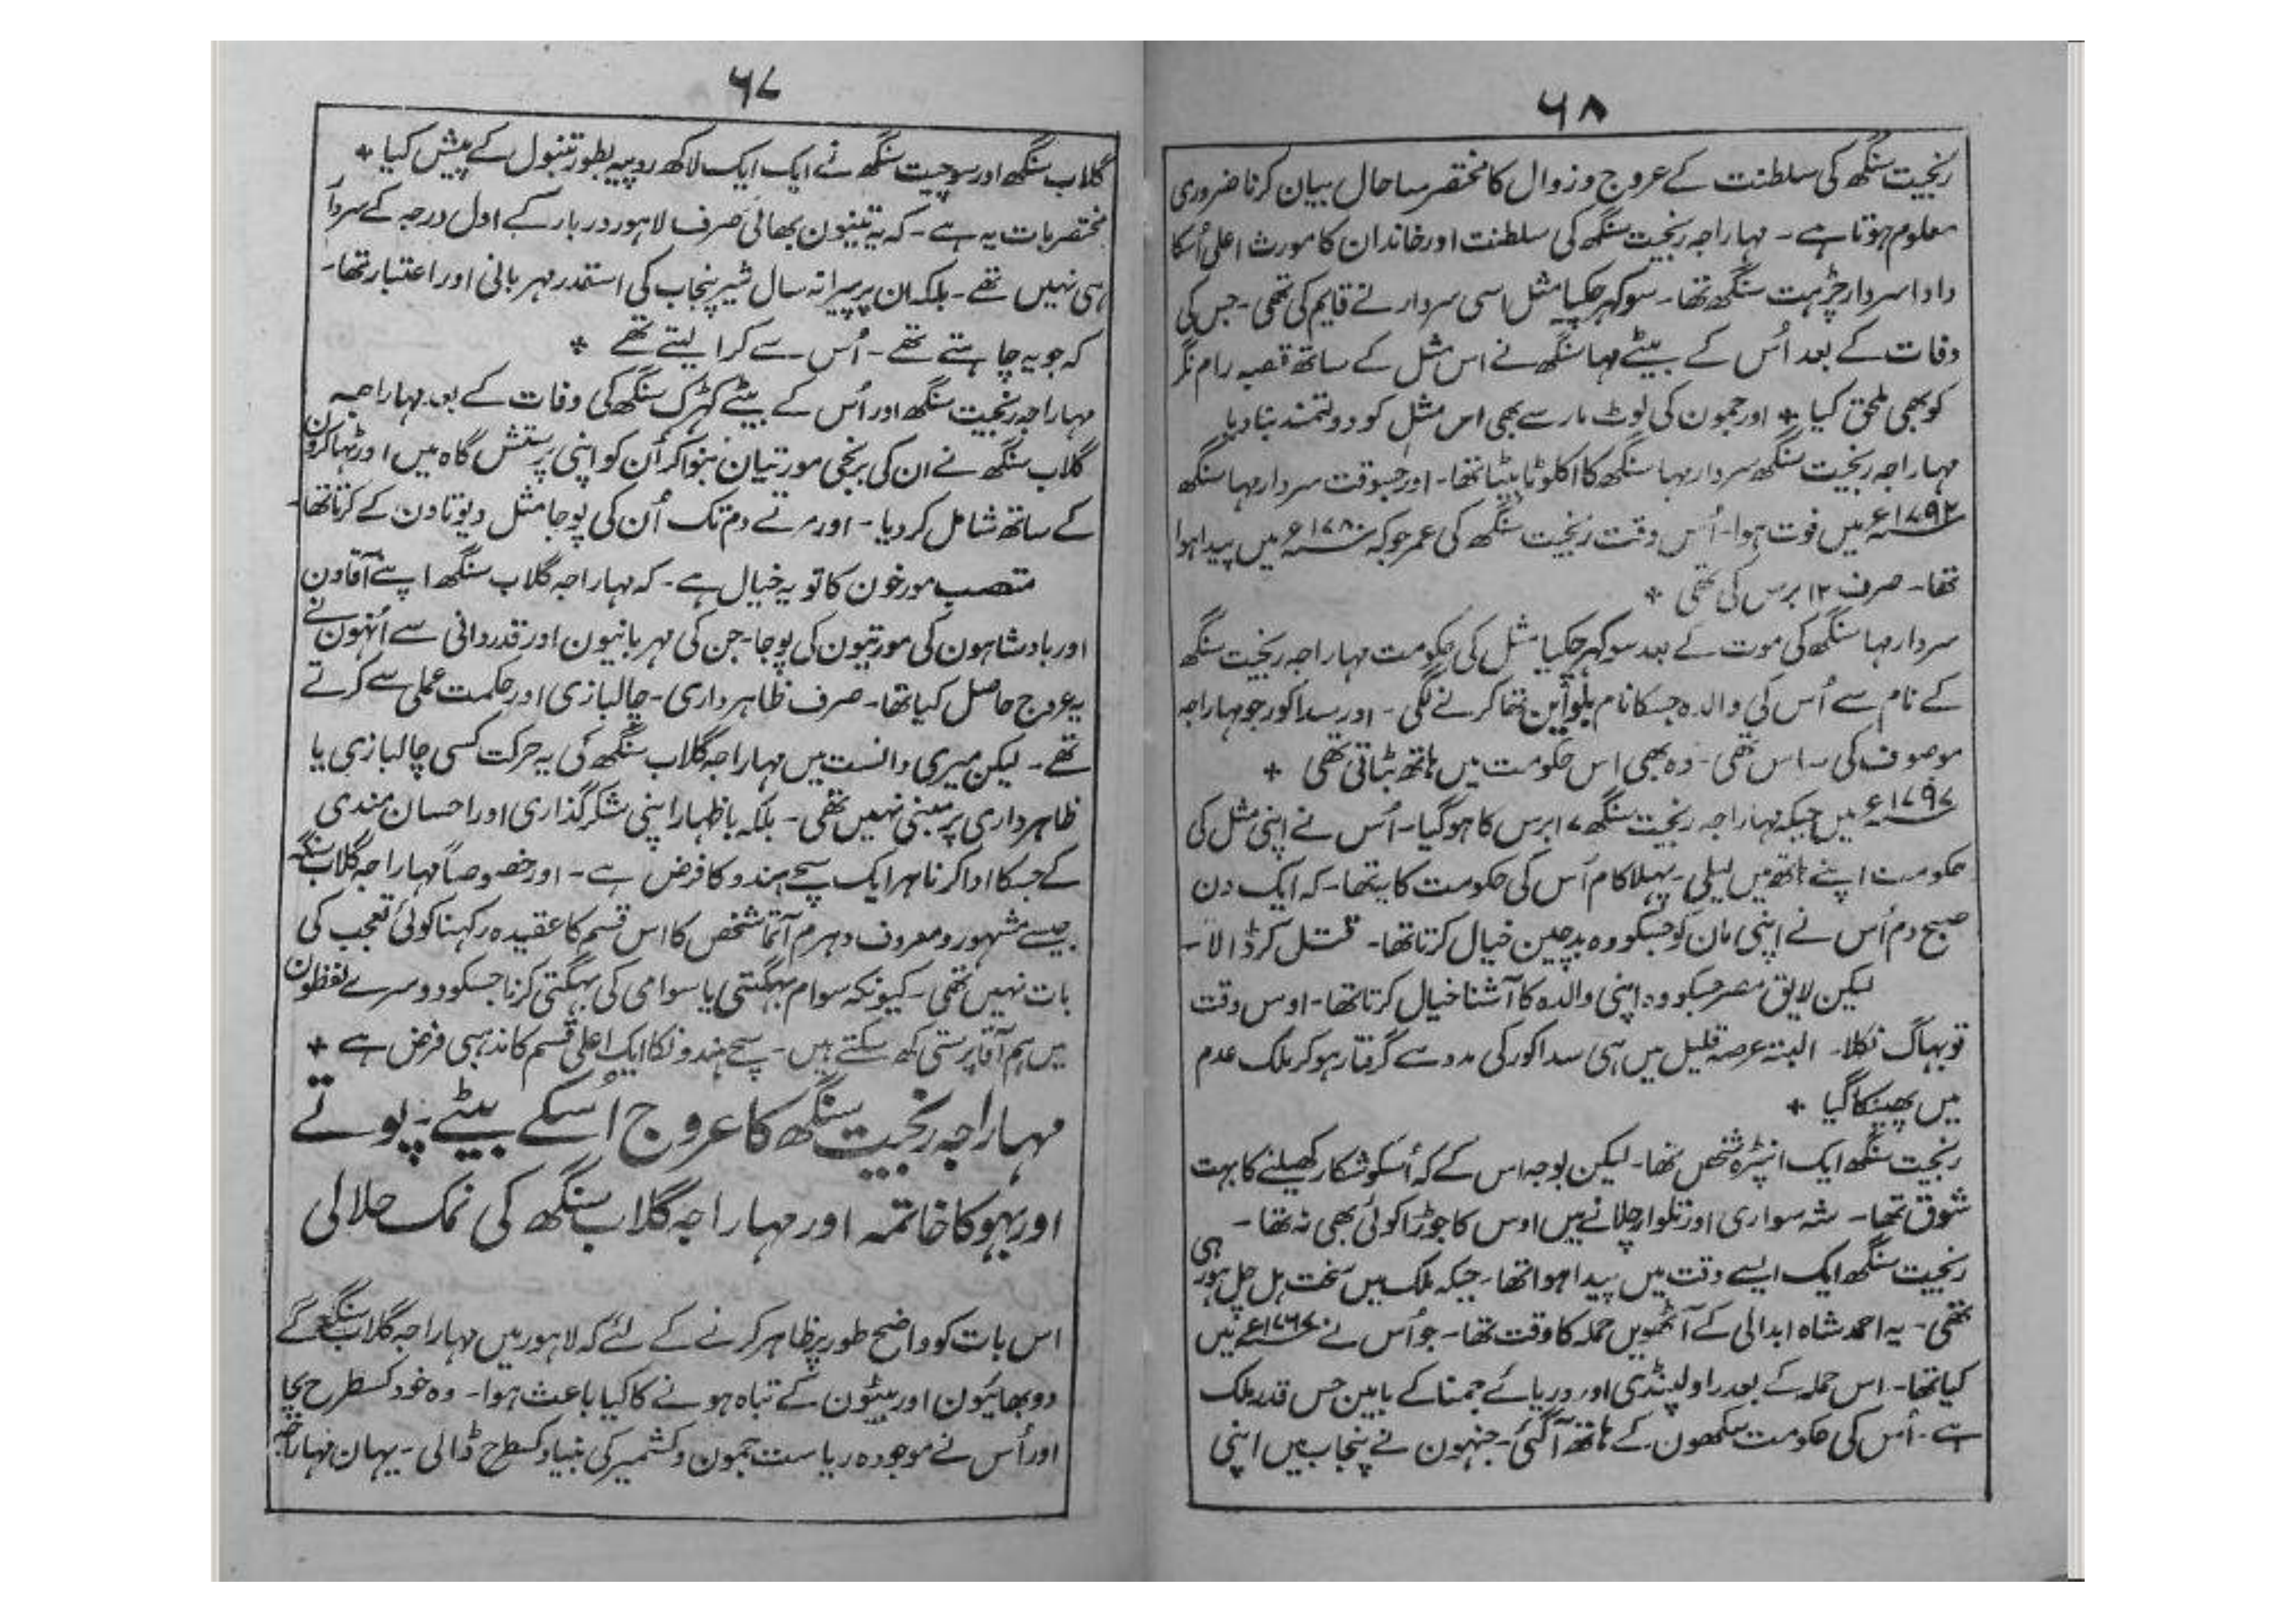 ۶۷
گلاب سنگھ اور سوچیت سنگھ نے ایک ایک لاکھ روپیہ بطور تنبول کے پیش کیا +
مختصر بات یہ ہے۔ کہ یہ تینون بھائی صرف لاہور دربار کے اول درجہ کے سردار
ہی نہیں تھے۔ بلکہ ان پر پیرانہ سال شیر پنجاب کی استقدر مہربانی اور اعتبار تھا۔
کہ جو یہ چاہتے تھے۔ اُس سے کرا لیتے تھے +
مہاراجہ رنجیت سنگھ اور اُس کے بیٹے کھڑک سنگھ کی وفات کے بعد مہاراجہ
گلاب سنگھ نے ان کی برنجی مورتیان بنوا کر اُن کو اپنی پرستش گاہ میں اور ٹہاکرون
کے ساتھ شامل کر دیا۔ اور مرتے دم تک اُن کی پوجا مثل دیوتاون کے کرتا تھا۔
متعصب مورخون کا تو یہ خیال ہے۔ کہ مہاراجہ گلاب سنگھ اپنے آقاون
اور بادشاہون کی مورتیون کی پوجا۔ جن کی مہربانیون اور قدردانی سے اُنہون نے
یہ عروج حاصل کیا تھا۔ صرف ظاہرداری۔ چالبازی اور حکمت عملی سے کرتے
تھے۔ لیکن میری دانست میں مہاراجہ گلاب سنگھ کی یہ حرکت کسی چالبازی یا
ظاہرداری پر مبنی نہیں تھی۔ بلکہ باظہار اپنی شکرگذاری اور احسان مندی
کے جسکا ادا کرنا ہر ایک سچے ہندو کا فرض ہے۔ اور خصوصاً مہاراجہ گلاب سنگہ
جیسے مشہور و معروف دہرم آتما شخص کا اس قسم کا عقیدہ رکہنا کوئی تعجب کی
بات نہیں تھی۔ کیونکہ سوام بہگتی یا سوامی کی بہگتی کرنا جسکو دوسرے لفظون
میں ہم آقا پرستی کھ سکتے ہیں۔ سچے ہندونکا ایک اعلیٰ قسم کا مذہبی فرض ہے +
مہاراجہ رنجیت سنگھ کا عروج اُسکے بیٹے۔ پوتے
اور بہو کا خاتمہ اور مہاراجہ گلاب سنگھ کی نمک حلالی
اس بات کو واضح طور پر ظاہر کرنے کے لئے کہ لاہور میں مہاراجہ گلاب سنگھ کے
دو بھائیون اور بیٹون کے تباہ ہونے کا کیا باعث ہوا۔ وہ خود کسطرح بچا
اور اُس نے موجودہ ریاست جمون و کشمیر کی بنیاد کسطرح ڈالی۔ یہان مہاراجہ
۶۸
رنجیت سنگھ کی سلطنت کے عروج و زوال کا مختصر سا حال بیان کرنا ضروری
معلوم ہوتا ہے۔ مہاراجہ رنجیت سنگھ کی سلطنت اور خاندان کا مورث اعلیٰ اُسکا
دادا سردار چڑہت سنگھ تھا۔ سوکہر چکیا مثل اسی سردار نے قایم کی تھی۔ جس کی
وفات کے بعد اُس کے بیٹے مہا سنگھ نے اس مثل کے ساتھ قصبہ رام نگر
کو بھی ملحق کیا + اور جمون کی لوٹ مار سے بھی اس مثل کو دولتمند بنا دیا
مہاراجہ رنجیت سنگھ سردار مہا سنگھ کا اکلوتا بیٹا تھا۔ اور جسوقت سردار مہا سنگھ
۱۷۹۲ء میں فوت ہوا۔ اُس وقت رنجیت سنگھ کی عمر جو کہ ۱۷۸۰ء میں پیدا ہوا
تھا۔ صرف ۱۲ برس کی تھی +
سردار مہا سنگھ کی موت کے بعد سوکہر چکیا مثل کی حکومت مہاراجہ رنجیت سنگھ
کے نام سے اُس کی والدہ جسکا نام تھا کرنے لگی۔ اور سدا کور جو مہاراجہ
موصوف کی ساس تھی۔ وہ بھی اس حکومت میں ہاتھ بٹاتی تھی +
۱۷۹۷ء میں جبکہ مہاراجہ رنجیت سنگھ ۱۷ برس کا ہو گیا۔ اُس نے اپنی مثل کی
حکومت اپنے ہاتھ میں لیلی۔ پہلا کام اُس کی حکومت کا یہ تھا۔ کہ ایک دن
صبح دم اُس نے اپنی مان کو جسکو وہ بدچلن خیال کرتا تھا۔ قتل کر ڈالا۔
لیکن لایق مصر جسکو وہ اپنی والدہ کا آشنا خیال کرتا تھا۔ اوس وقت
تو بہاگ نکلا۔ البتہ عرصہ قلیل میں ہی سدا کور کی مدد سے گرفتار ہو کر ملک عدم
میں پھینکا گیا +
رنجیت سنگھ ایک انپڑہ شخص تھا۔ لیکن بوجہ اس کے کہ اُسکو شکار کھیلنے کا بہت
شوق تھا۔ شہ سواری اور تلوار چلانے میں اوس کا جوڑا کوئی بھی نہ تھا۔
رنجیت سنگھ ایک ایسے وقت میں پیدا ہوا تھا۔ جبکہ ملک میں سخت ہل چل ہو رہی
تھی۔ یہ احمد شاہ ابدالی کے آٹھویں حملہ کا وقت تھا۔ جو اُس نے ۱۷۶۷ء میں
کیا تھا۔ اس حملہ کے بعد راولپنڈی اور دریائے جمنا کے مابین جس قدر ملک
ہے۔ اُس کی حکومت سکھون کے ہاتھ آگئی۔ جنہون نے پنجاب میں اپنی